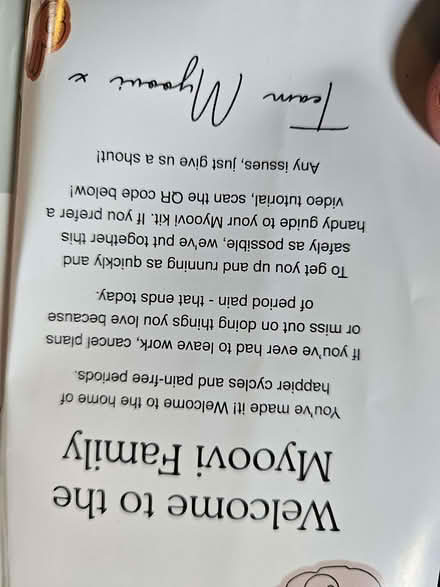 Welcome to the
Myoovi Family
You've made it! Welcome to the home of
happier cycles and pain-free periods.
If you've ever had to leave work, cancel plans
or miss out on doing things you love because
of period pain - that ends today.
To get you up and running as quickly and
safely as possible, we've put together this
handy guide to your Myoovi kit. If you prefer a
video tutorial, scan the QR code below!
Any issues, just give us a shout!
Team Myoovi x